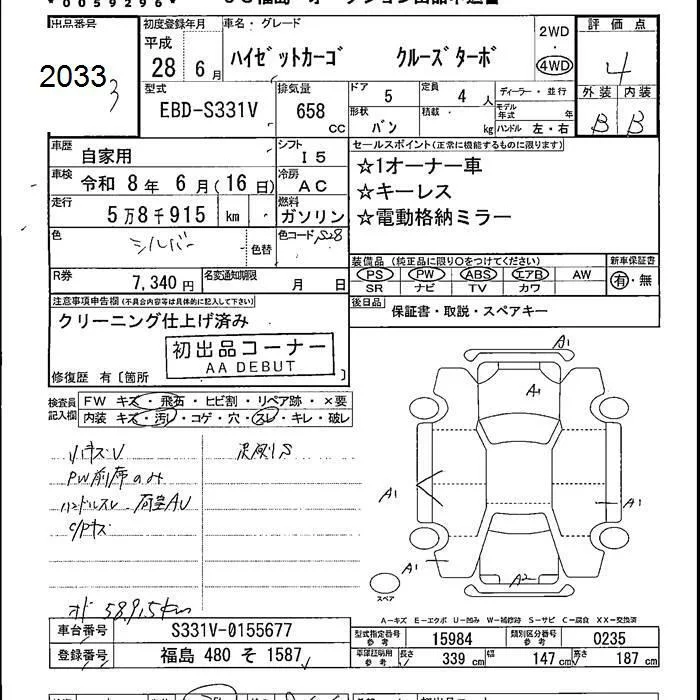 0059296
出品番号 2033 3
初度登録年月 平成 28年 6月
車名・グレード ハイゼットカーゴ クルーズターボ
2WD 4WD
評価点 4
外装 内装
B B
型式 EBD-S331V
排気量 658 cc
ドア 5
定員 4 人
ディーラー・並行
形状 バン
積載 kg
モデル年式 年
ハンドル 左・右
車歴 自家用
シフト I5
セールスポイント(正常に機能するものに限ります)
☆1オーナー車
☆キーレス
☆電動格納ミラー
車検 令和 8年 6月(16日)
冷房 AC
走行 5万8千915 km
燃料 ガソリン
色 シルバー 色替
色コード S28
装備品(純正品に限り○をつけてください)
PS PW ABS エアB AW
SR ナビ TV カワ
新車保証書 有・無
R券 7,340円
名変通知期限 月 日
後日品 保証書・取説・スペアキー
注意事項申告欄(不具合内容等は具体的に記入して下さい)
クリーニング仕上げ済み
初出品コーナー
AA DEBUT
修復歴 有〔箇所 〕
検査員記入欄
FW キズ・飛石・ヒビ割・リペア跡・×要
内装 キズ・汚レ・コゲ・穴・スレ・キレ・破レ
PW前席のみ
ハンドルスレ 荷室AU
C/Pキズ
オド 58915km
A1
A1
A1
A1
A1
A2
スペア
A-キズ E-エクボ U-凹み W-補修跡 S-サビ C-腐食 XX-交換済
車台番号 S331V-0155677
登録番号 福島 480 そ 1587
型式指定番号 参考 15984
類別区分番号 参考 0235
車庫証明用 参考 長さ 339 cm 幅 147 cm 高さ 187 cm